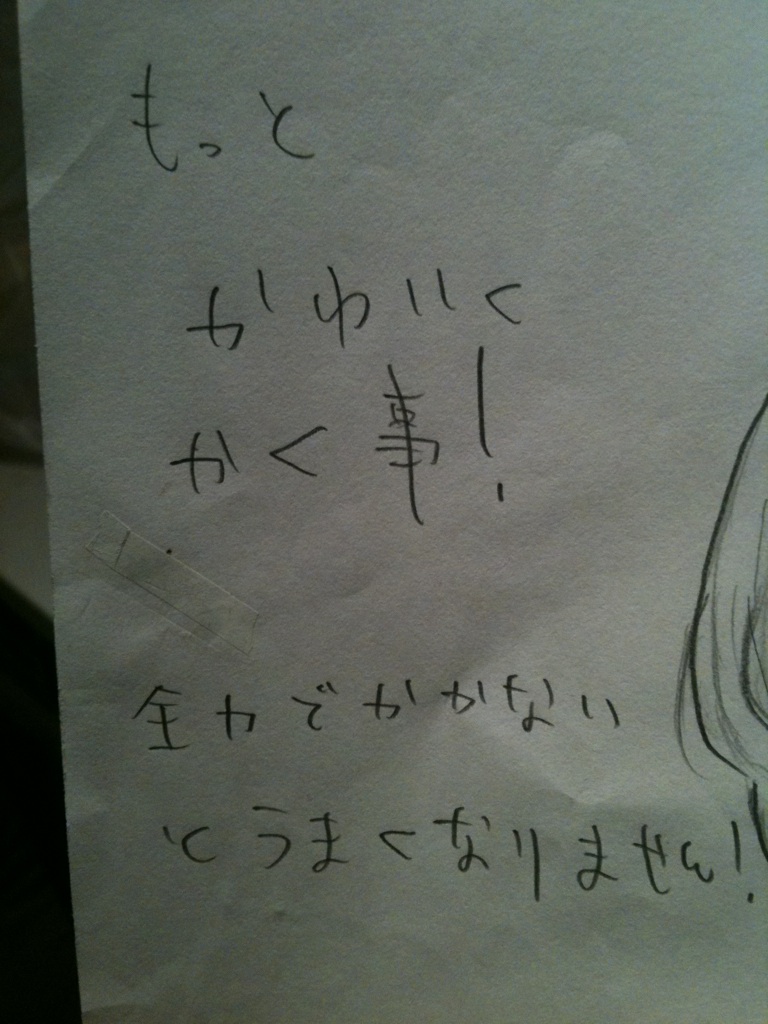 もっと
かわいく
かく事!
全力でかかない
とうまくなりません!